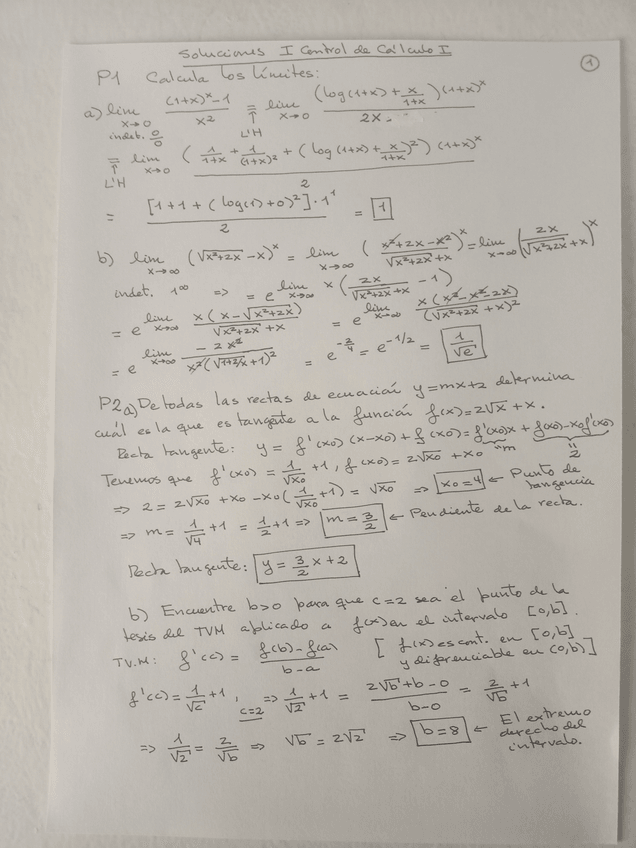 Soluciones I Control de Cálculo I
1
P1 Calcula los límites:
a) lim x→0 ((1+x)^x - 1)/x² = lim x→0 ((log(1+x) + x/(1+x))(1+x)^x)/2x
indet. 0/0 ↑ L'H
= lim x→0 ((1/(1+x) + 1/(1+x)² + (log(1+x) + x/(1+x))²)(1+x)^x)/2
↑ L'H
= ([1+1+(log(1)+0)²]·1¹)/2 = 1
b) lim x→∞ (√(x²+2x) - x)^x = lim x→∞ ((x²+2x-x²)/(√(x²+2x)+x))^x = lim x→∞ (2x/(√(x²+2x)+x))^x
indet. 1^∞ => = e^(lim x→∞ x(2x/(√(x²+2x)+x) - 1))
= e^(lim x→∞ x(x-√(x²+2x))/(√(x²+2x)+x)) = e^(lim x→∞ x(x²-x²-2x)/(√(x²+2x)+x)²)
= e^(lim x→∞ -2x²/(x²(√(1+2/x)+1)²)) = e^(-2/4) = e^(-1/2) = 1/√e
P2 a) De todas las rectas de ecuación y=mx+2 determina
cuál es la que es tangente a la función f(x)=2√x+x.
Recta tangente: y = f'(x0)(x-x0)+f(x0) = f'(x0)x + f(x0)-x0f'(x0)
Tenemos que f'(x0) = 1/√x0 + 1, f(x0) = 2√x0 + x0 "m = 2
=> 2 = 2√x0 + x0 - x0(1/√x0 + 1) = √x0 => x0=4 ← Punto de tangencia
=> m = 1/√4 + 1 = 1/2 + 1 => m = 3/2 ← Pendiente de la recta.
Recta tangente: y = 3/2 x + 2
b) Encuentre b>0 para que c=2 sea el punto de la
tesis del TVM aplicado a f(x) en el intervalo [0,b].
T.V.M: f'(c) = (f(b)-f(a))/(b-a) [f(x) es cont. en [0,b] y diferenciable en (0,b)]
f'(c) = 1/√c + 1, => c=2 1/√2 + 1 = (2√b+b-0)/(b-0) = 2/√b + 1
=> 1/√2 = 2/√b => √b = 2√2 => b=8 ← El extremo derecho del intervalo.